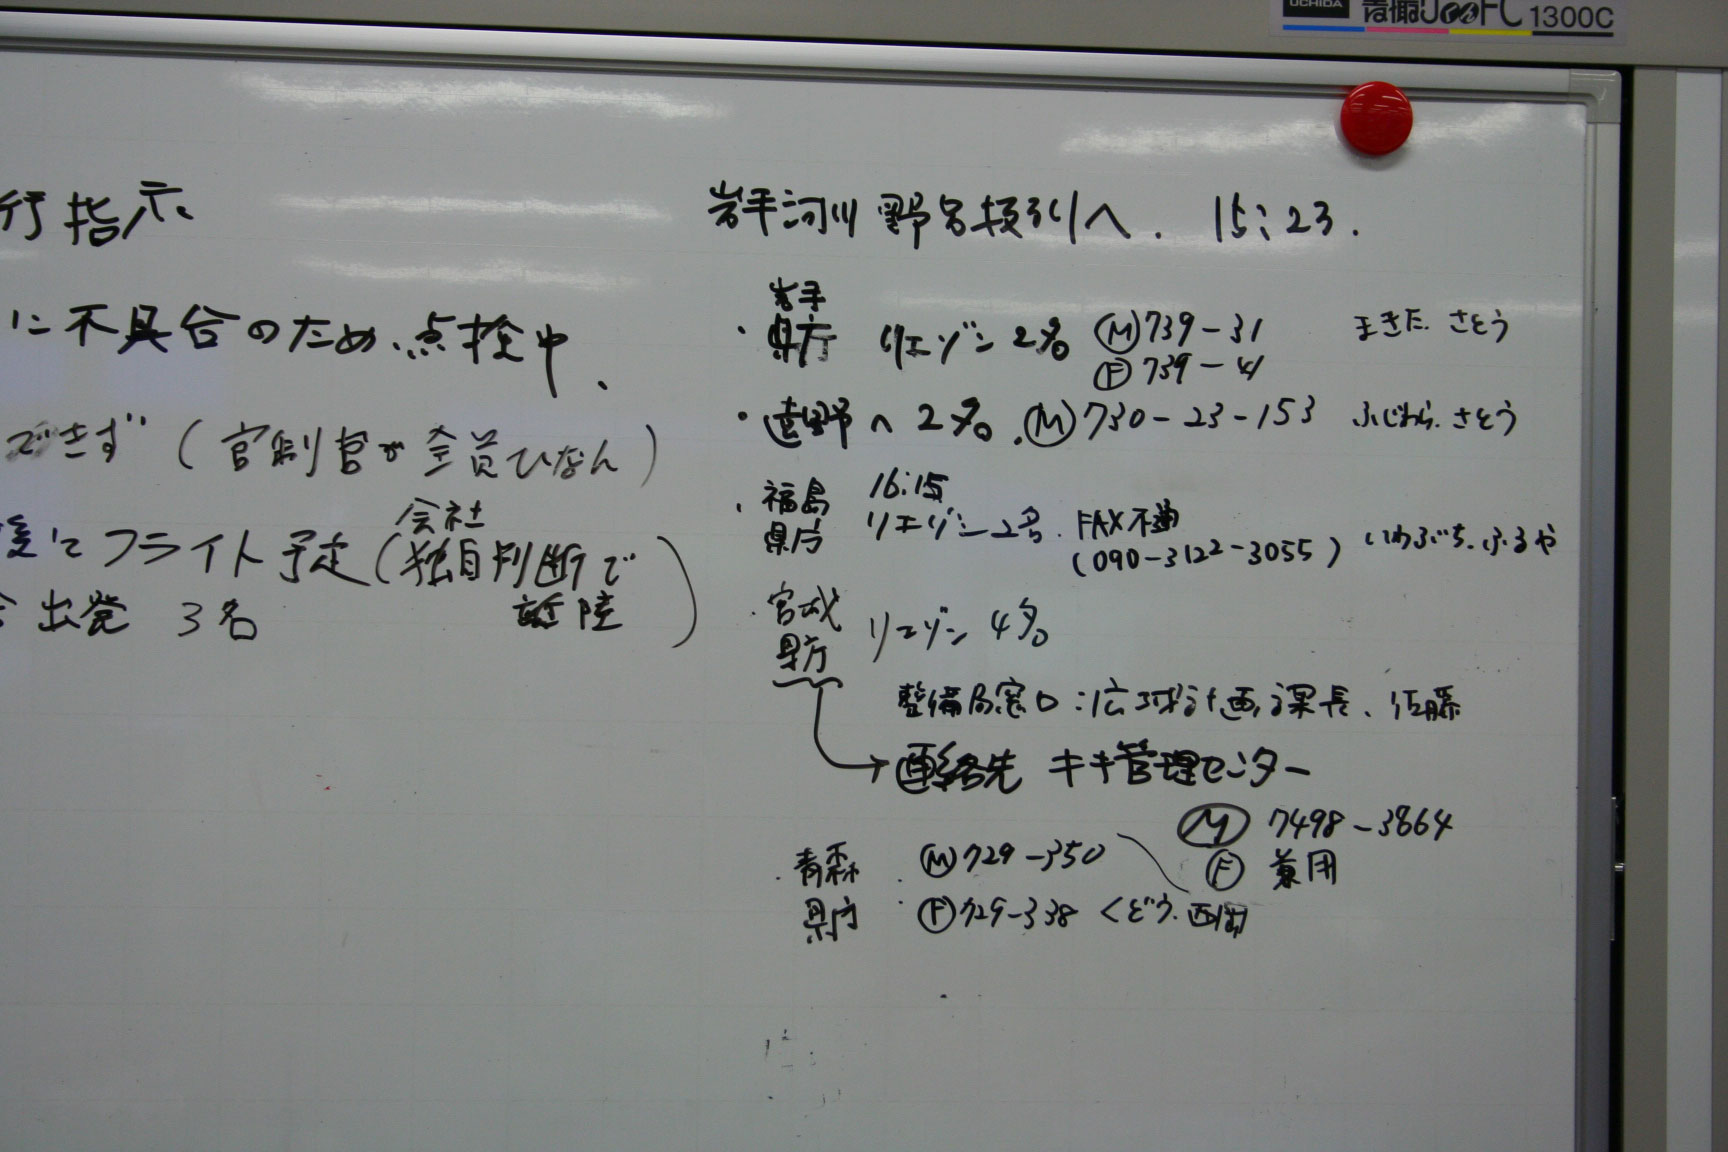 UCHIDA
1300C
行指示
に不具合のため、点検中、
できず(官制官が全員ひなん)
会社
後にフライト予定(独自判断で
離陸)
出発 3名
岩手河川 へ. 15:23.
・岩手県庁 リエゾン2名 Ⓜ739-31 まきた. さとう
Ⓕ 739-41
・遠野へ2名. Ⓜ730-23-153 ふじわら. さとう
・福島県庁 16:15
リエゾン2名. FAX不通
(090-3122-3055) いわぶち.ふるや
・宮城県庁 リエゾン 4名
整備局窓口:広域計画課長、佐藤
→連絡先 キキ管理センター
Ⓜ 7498-3864
Ⓕ 兼用
・青森県庁 Ⓜ729-350
Ⓕ729-338 くどう.西岡